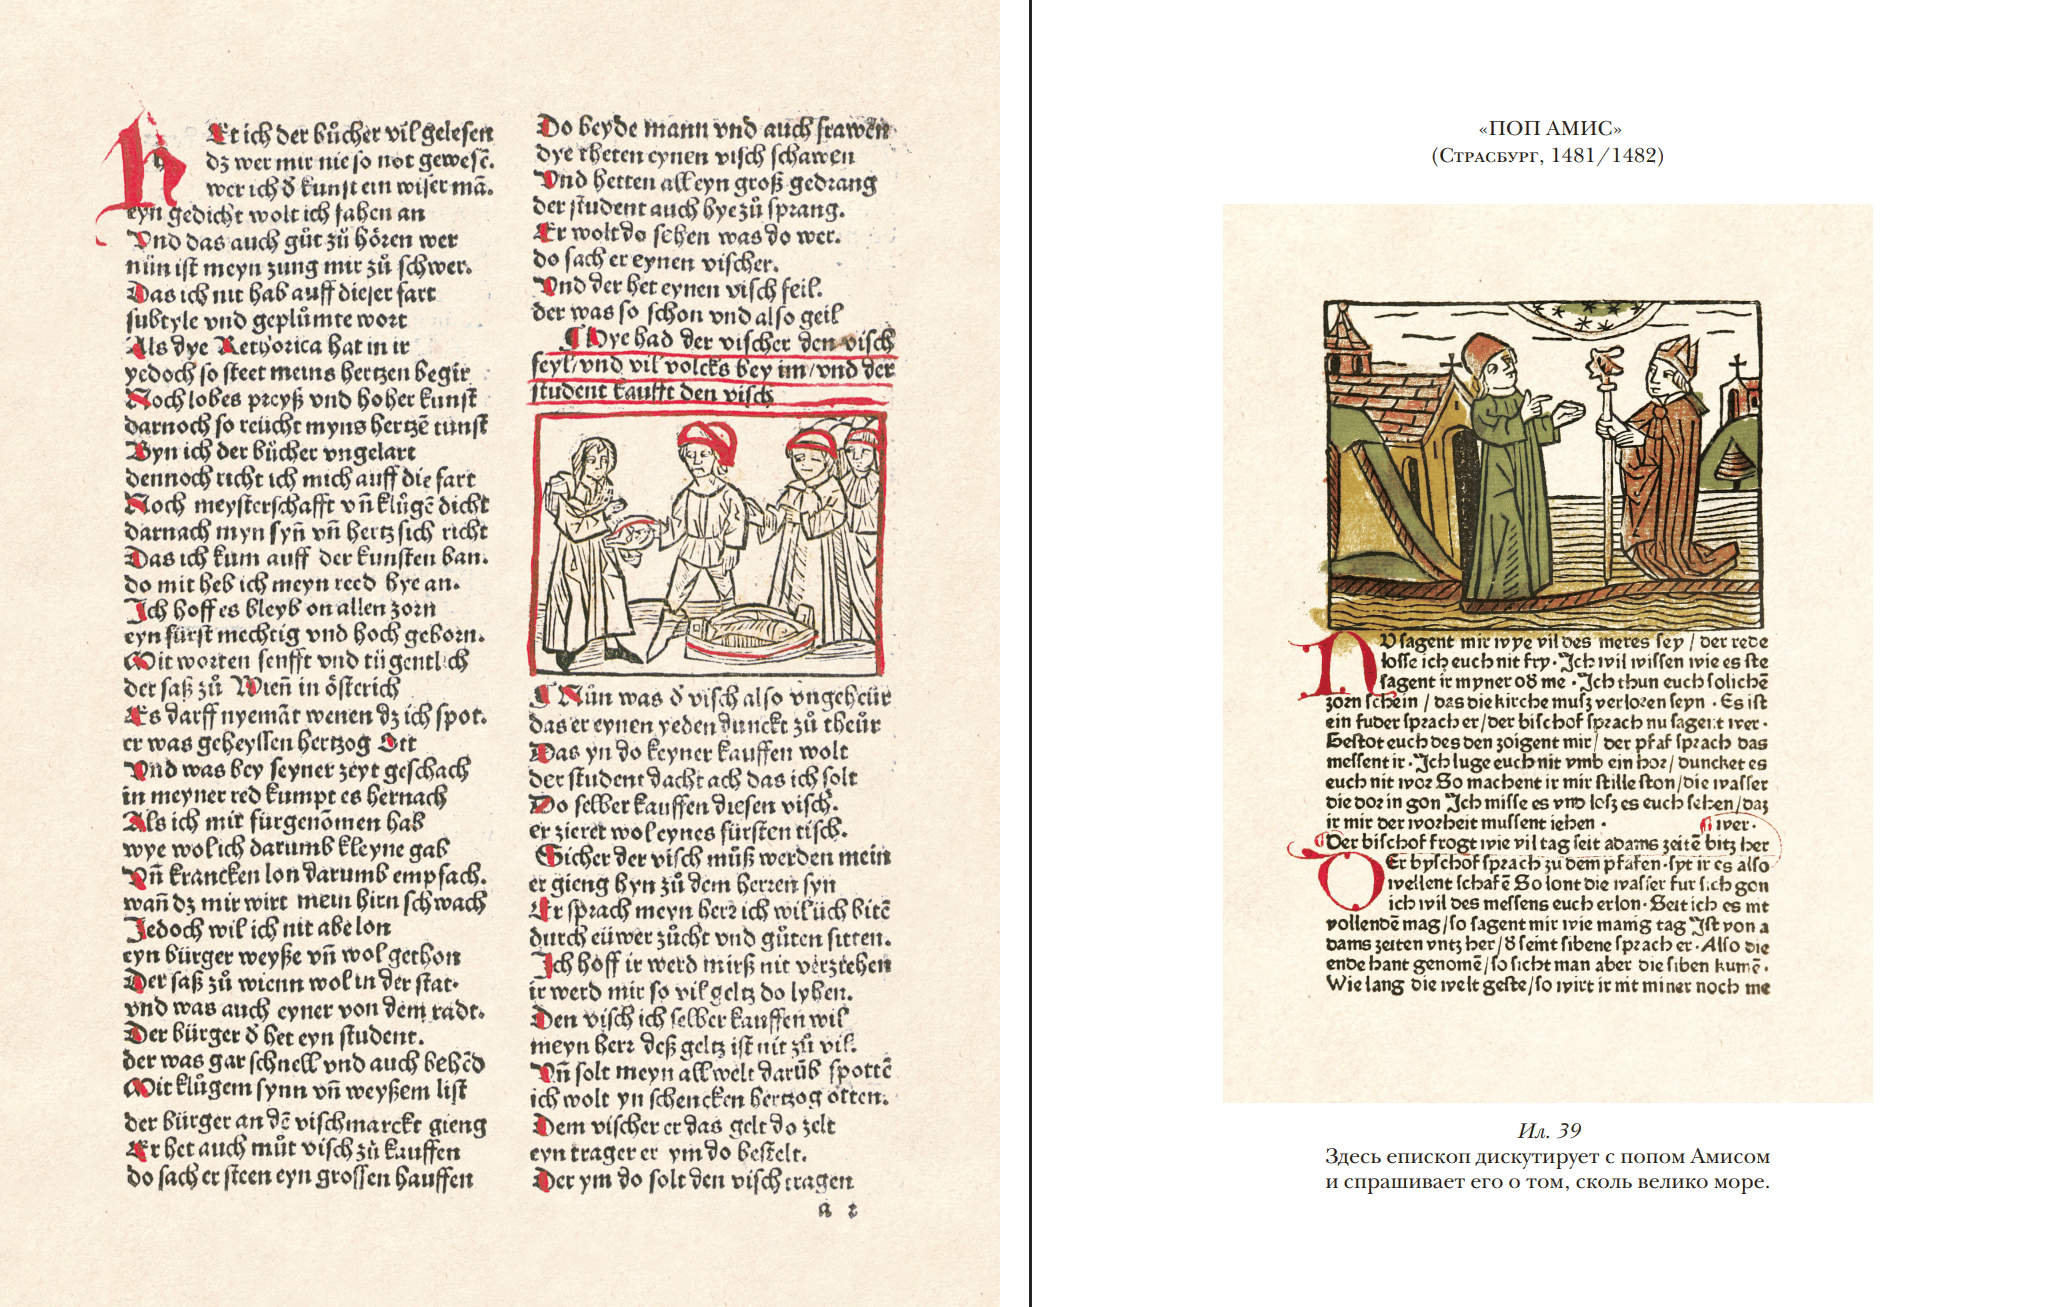 Et ich der bůcher vil gelesen
dz wer mir nie so not gewesē.
wer ich d̄ kunst ein wiser mā.
eyn gedicht wolt ich fahen an
Vnd das auch gůt zů hören wer
nün ist meyn zung mir zů schwer.
Das ich nit hab auff dieser fart
subtyle vnd geplůmte wort
Als dye Rethorica hat in ir
yedoch so steet meins hertzen begir
Noch lobes preyß vnd hoher kunst
darnoch so reücht myns hertzē tunst
Byn ich der bücher vngelart
dennoch richt ich mich auff die fart
Noch meysterschafft vn̄ klůgē dicht
darnach myn syn̄ vn̄ hertz sich richt
Das ich kum auff der kunsten ban.
do mit heb ich meyn reed hye an.
Ich hoff es bleyb on allen zorn
eyn fürst mechtig vnd hoch geborn.
Mit worten senfft vnd tügentlich
der saß zů Wien̄ in österich
Es darff nyemāt wenen dz ich spot.
er was geheyssen hertzog Ott
Vnd was bey seyner zeyt geschach
in meyner red kumpt es hernach
Als ich mir fürgenōmen hab
wye wol ich darumb kleyne gab
Vn̄ krancken lon darumb empfach.
wan̄ dz mir wirt mein hirn schwach
Jedoch wil ich nit abelon
eyn bürger weyße vn̄ wol gethon
Der saß zů wienn wol in der stat.
vnd was auch eyner von dem radt.
Der bürger d̄ het eyn student.
der was gar schnell vnd auch behēd
Mit klůgem synn vn̄ weyßem list
der bürger an dē vischmarckt gieng
Er het auch můt visch zů kauffen
do sach er steen eyn grossen hauffen
Do beyde mann vnd auch frawen
dye theten eynen visch schawen
Vnd hetten all eyn groß gedrang
der student auch hye zů sprang.
Er wolt do sehen was do wer.
do sach er eynen vischer.
Vnd der het eynen visch feil.
der was so schon vnd also geil
¶ Hye had der vischer den visch
feyl/vnd vil volcks bey im/vnd der
student kaufft den visch
¶ Nün was d̄ visch also vngeheür
das er eynen yeden dunckt zů theür
Das yn do keyner kauffen wolt
der student dacht ach das ich solt
Do selber kauffen diesen visch.
er zieret wol eynes fürsten tisch.
Sicher der visch můß werden mein
er gieng hyn zů dem herren syn
Er sprach meyn herr ich wil üch bitē
durch eüwer zücht vnd gůten sitten.
Ich hoff ir werd mirß nit verziehen
ir werd mir so vil geltz do lyhen.
Den visch ich selber kauffen wil
meyn herr deß geltz ist nit zů vil.
Vn̄ solt meyn all welt darūb spottē
ich wolt yn schencken hertzog otten.
Dem vischer er das gelt do zelt
eyn trager er ym do bestelt.
Der ym do solt den visch tragen
a 2
«ПОП АМИС»
(Страсбург, 1481/1482)
NV sagent mir wye vil des meres sey / der rede
losse ich euch nit fry. Ich wil wissen wie es ste
sagent ir myner od̄ me. Ich thun euch solichē
zorn schein / das die kirche musz verloren seyn. Es ist
ein fuder sprach er/der bischof sprach nu sagent wer.
Gestot euch des den zoigent mir/ der pfaf sprach das
messent ir. Ich luge euch nit vmb ein hor/ duncket es
euch nit wor So machent ir mir stille ston/die wasser
die dor in gon Ich misse es vnd losz es euch sehen/daz
ir mir der worheit mussent iehen.
¶ wer.
¶ Der bischof frogt wie vil tag seit adams zeitē bitz her
DEr byschof sprach zu dem pfafen. syt ir es also
wellent schafē So lont die wasser fur sich gon
ich wil des messens euch erlon. Seit ich es nit
vollendē mag/so sagent mir wie manig tag Ist von a
dams zeiten vntz her/d̄ seint sibene sprach er. Also die
ende hant genomē/so sicht man aber die siben kumē.
Wie lang die welt geste/so wirt ir nit miner noch me
Ил. 39
Здесь епископ дискутирует с попом Амисом
и спрашивает его о том, сколь велико море.